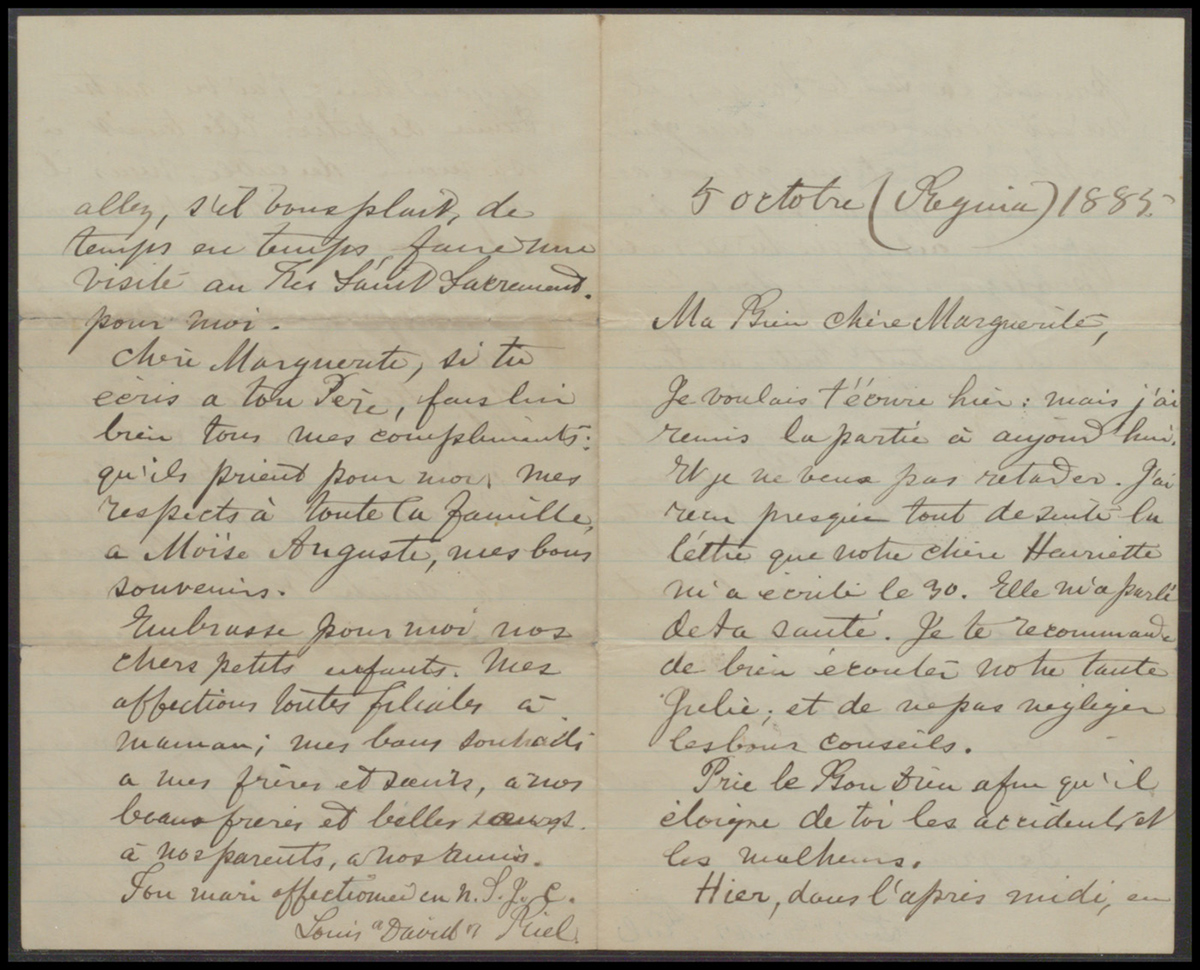 5 octobre (Regina) 1885.
Ma Bien chère Marguerite,
Je voulais t'écrire hier : mais j'ai
remis la partie à aujourd'hui.
Et je ne veux pas retarder. J'ai
reçu presque tout de suite la
lettre que notre chère Henriette
m'a écrite le 30. Elle m'a parlé
de ta santé. Je te recommande
de bien écouter notre tante
Julie ; et de ne pas négliger
les bons conseils.
Prie le Bon Dieu afin qu'il
éloigne de toi les accidents et
les malheurs.
Hier, dans l'après midi, en
allez, s'il vous plait, de
temps en temps, faire une
visite au Très Saint Sacrement.
pour moi.
chère Marguerite, si tu
écris a ton Père, fais lui
bien tous mes compliments :
qu'ils prient pour moi, mes
respects à toute la famille,
a Moïse Auguste, mes bons
souvenirs.
Embrasse pour moi nos
chers petits enfants. Mes
affections toutes filiales à
maman ; mes bons souhaits
a mes frères et sœurs, à nos
beaux frères et belles sœurs.
à nos parents, a nos amis.
Ton mari affectionné en N. S. J. C.
Louis "David" Riel